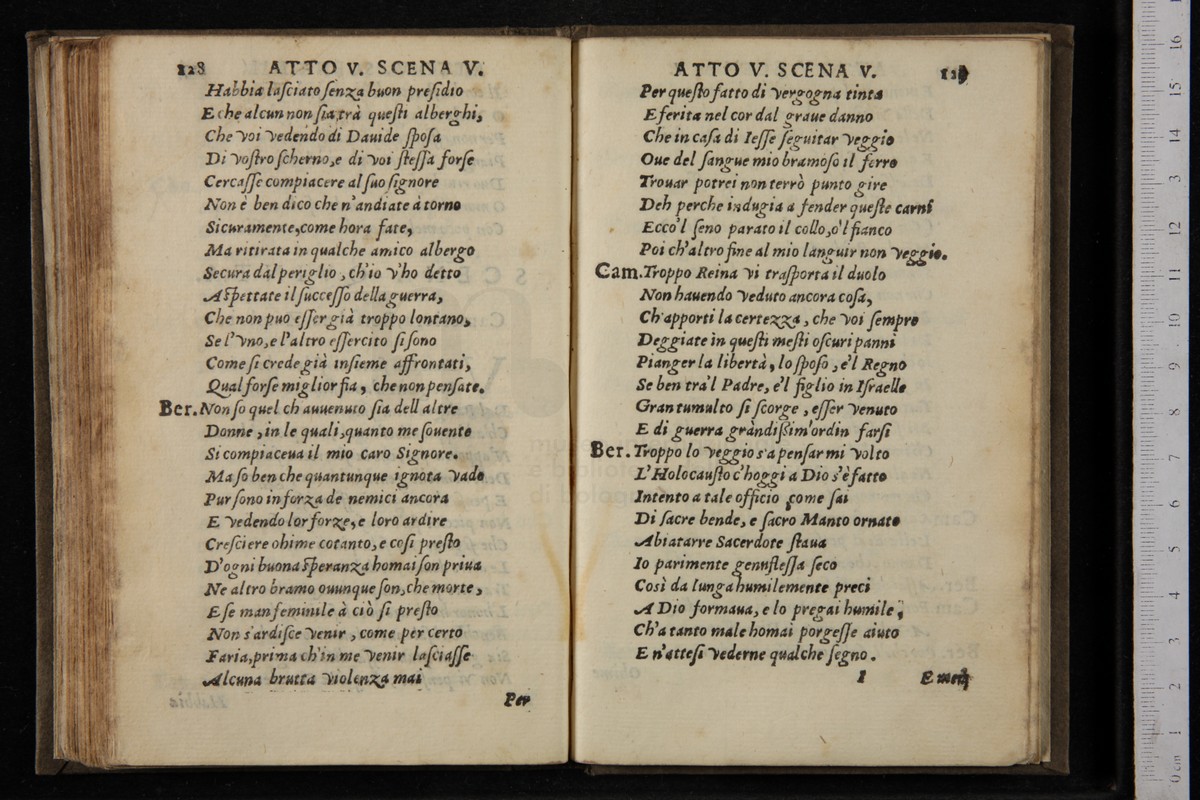 128 ATTO V. SCENA V.
Habbia laſciato ſenza buon preſidio
E che alcun non ſia,trà queſti alberghi,
Che voi vedendo di Dauide ſpoſa
Di voſtro ſcherno,e di voi ſteſſa forſe
Cercaſſe compiacere al ſuo ſignore
Non è ben dico che n'andiate à torno
Sicuramente,come hora fate,
Ma ritirata in qualche amico albergo
Secura dal periglio, ch'io v'ho detto
Aſpettate il ſucceſſo della guerra,
Che non puo eſſer già troppo lontano,
Se l'vno,e l'altro eſſercito ſi ſono
Come ſi crede già inſieme affrontati,
Qual forſe miglior fia, che non penſate.
Ber. Non ſo quel ch auuenuto ſia dell altre
Donne, in le quali,quanto me ſouente
Si compiaceua il mio caro Signore.
Ma ſo ben che quantunque ignota vado
Pur ſono in forza de nemici ancora
E vedendo lor forze,e loro ardire
Creſciere ohime cotanto,e coſi preſto
D'ogni buona ſperanza homai ſon priua
Ne altro bramo ouunque ſon,che morte,
E ſe man feminile à ciò ſi preſto
Non s'ardiſce venir, come per certo
Faria,prima ch'in me venir laſciaſſe
Alcuna brutta violenza mai
Per
ATTO V. SCENA V.
Per queſto fatto di vergogna tinta
E ferita nel cor dal graue danno
Che in caſa di Ieſſe ſeguitar veggio
Oue del ſangue mio bramoſo il ferro
Trouar potrei non terrò punto gire
Deh perche indugia a fender queſte carni
Ecco'l ſeno parato il collo,o'l fianco
Poi ch'altro fine al mio languir non veggio.
Cam. Troppo Reina vi traſporta il duolo
Non hauendo veduto ancora coſa,
Ch'apporti la certezza, che voi ſempre
Deggiate in queſti meſti oſcuri panni
Pianger la libertà, lo ſpoſo, e'l Regno
Se ben tra'l Padre, e'l figlio in Iſraelle
Gran tumulto ſi ſcorge, eſſer venuto
E di guerra grandiſſim'ordin farſi
Ber. Troppo lo veggio s'a penſar mi volto
L'Holocauſto c'hoggi a Dio s'è fatto
Intento a tale officio come ſai
Di ſacre bende, e ſacro Manto ornato
Abiatarre Sacerdote ſtaua
Io parimente genufleſſa ſeco
Così da lunga humilemente preci
A Dio formaua, e lo pregai humile,
Ch'a tanto male homai porgeſſe aiuto
E n'atteſi vederne qualche ſegno.
I